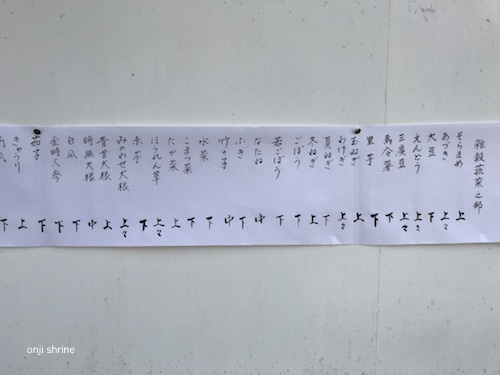 雑穀蔬菜之部
そらまめ 上
あづき 上々
大豆 下
えんどう 上々
三度豆 上々
馬令薯 下
里芋 下
玉ねぎ 上
わけぎ 上々
夏ねぎ 下
冬ねぎ 上
ごぼう 下
若ごぼう 下
なたね 中
ふき 下
竹の子 中
水菜 下
こまつ菜 下
たか菜 上
ほうれん草 上々
赤芋 下
みのわせ大根 上々
青首大根 上
時無大根 中
白瓜 下
金時人参 下
茄子 下
きゅうり 上
下
onji shrine